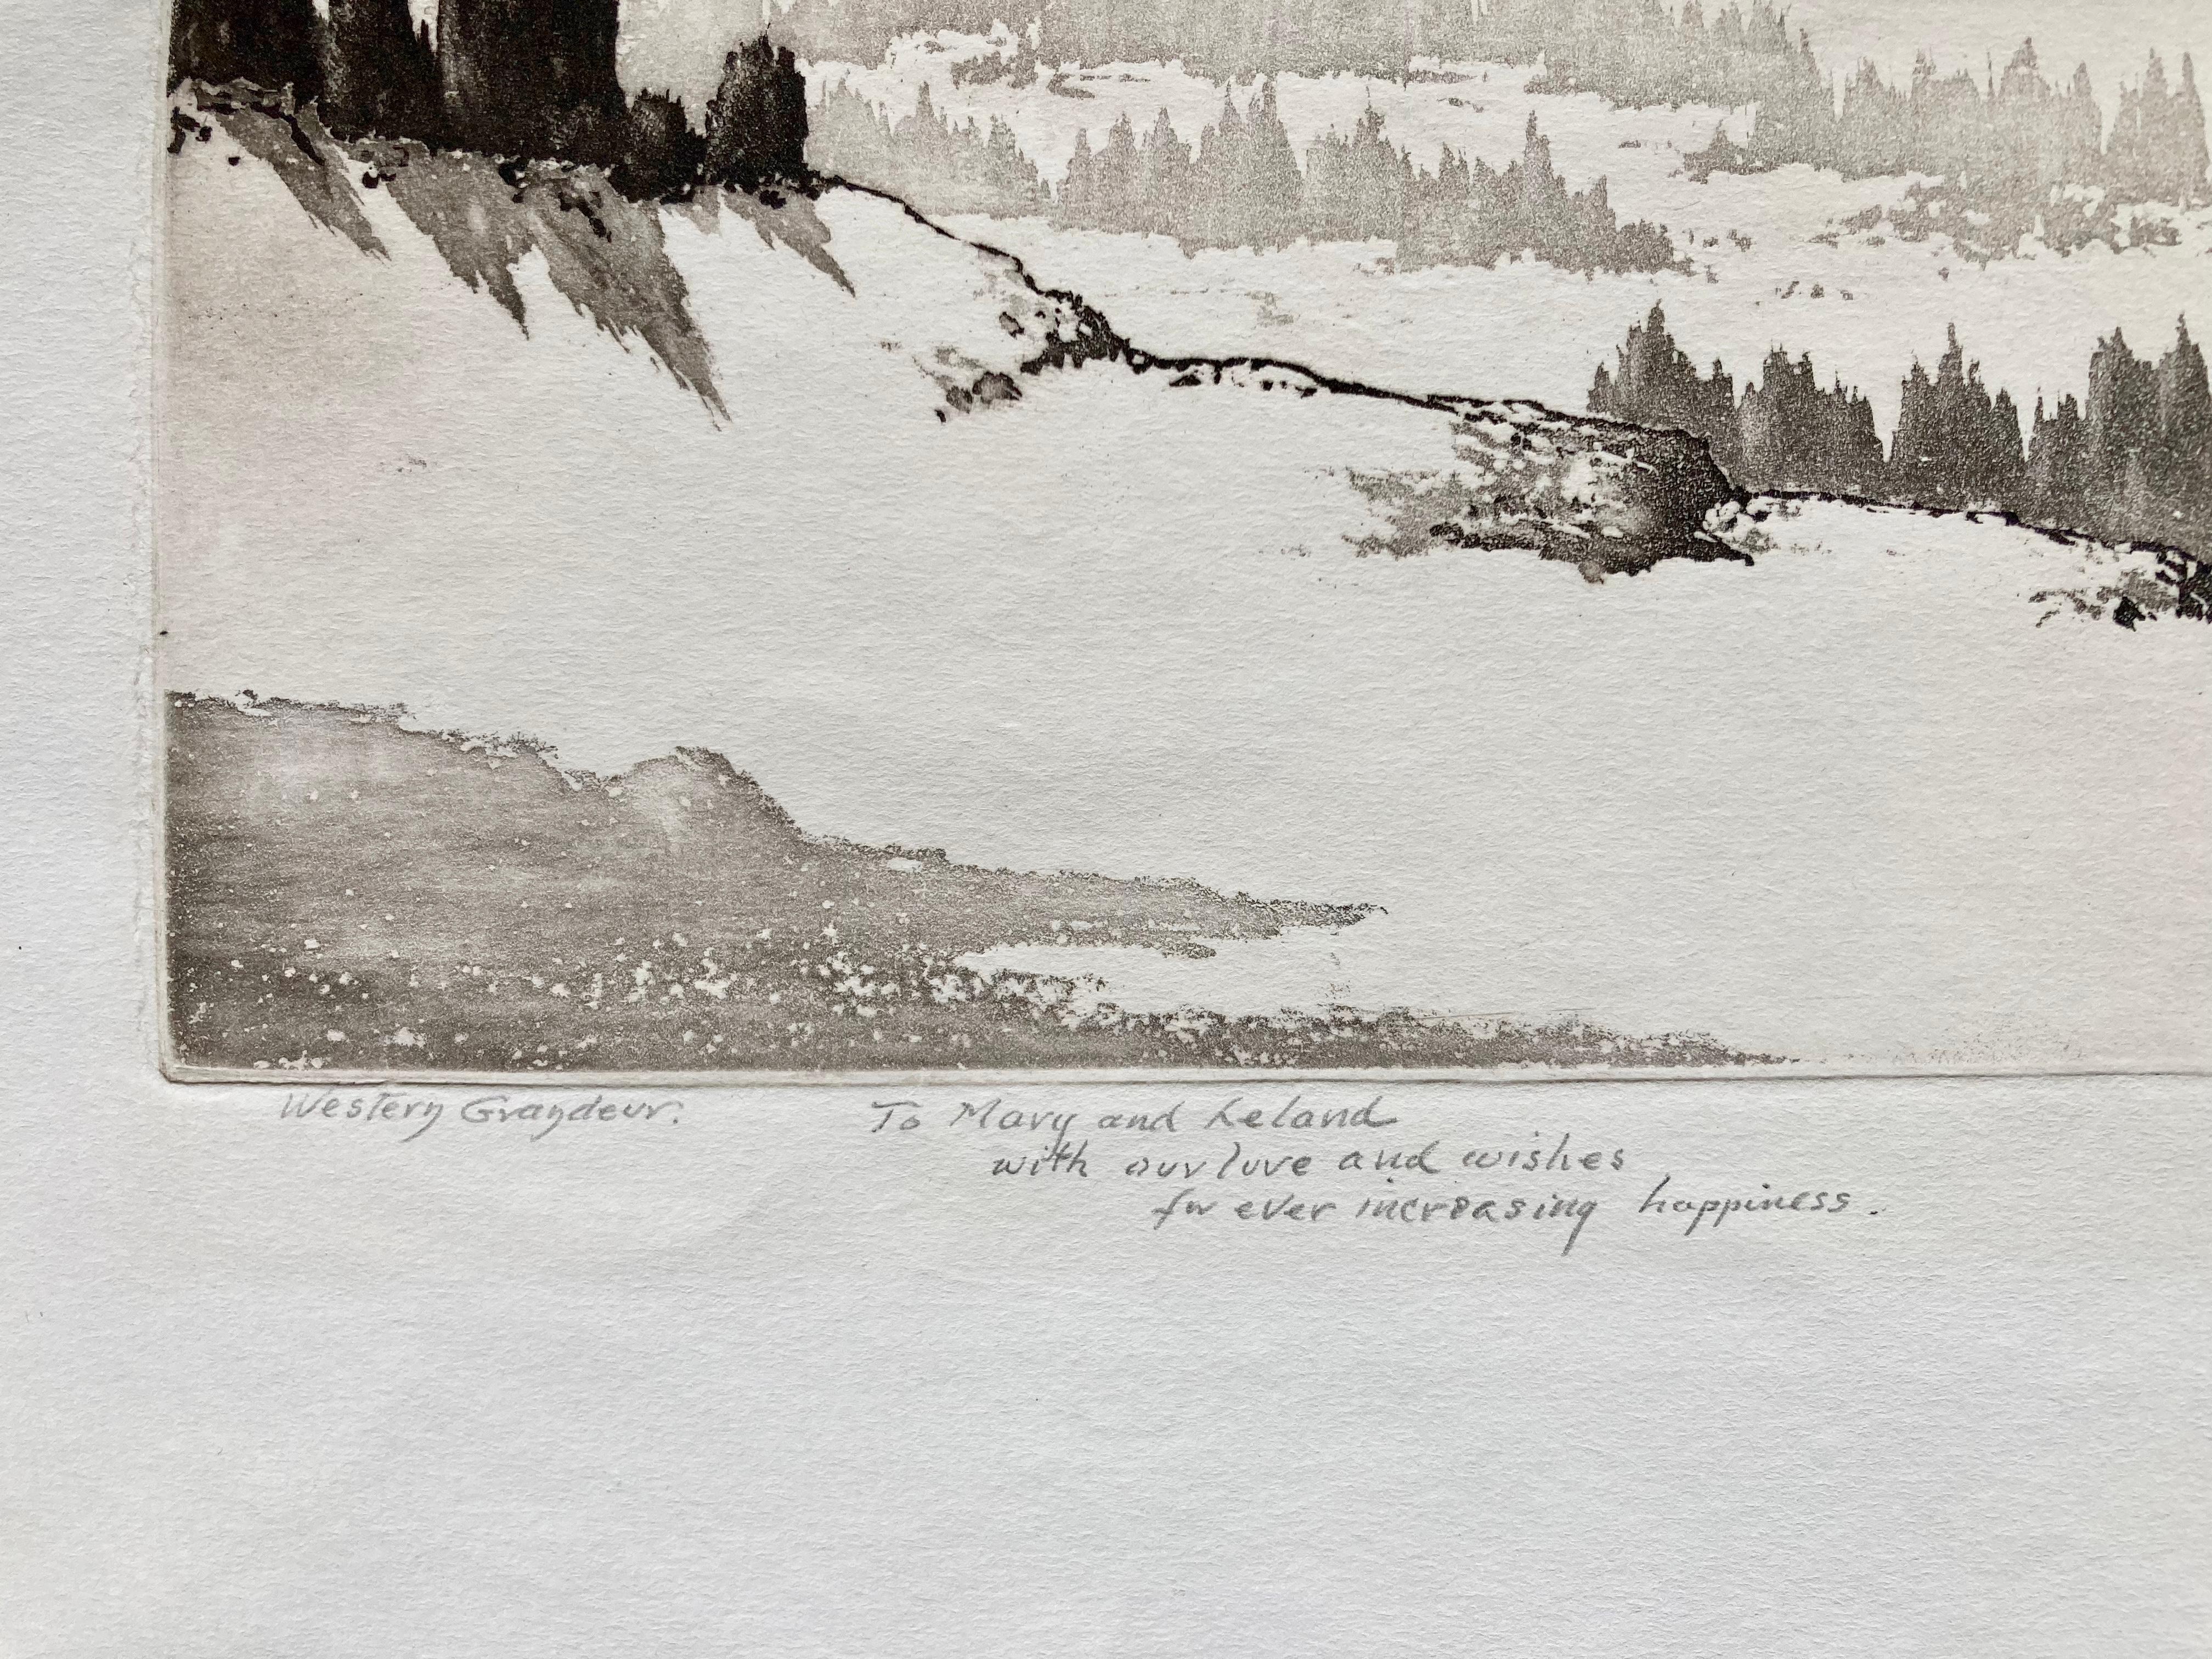 Western Grandeur.
To Mary and Leland
with our love and wishes
for ever increasing happiness.